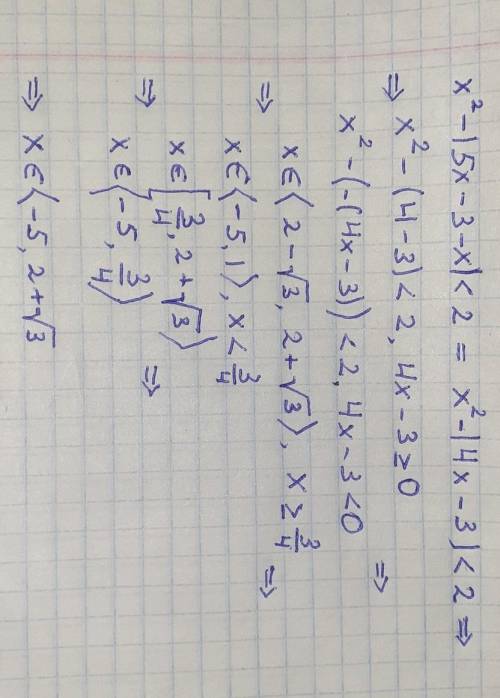 x² - |5x - 3 - x| < 2 = x² - |4x - 3| < 2 ⇒
⇒ x² - (4 - 3) < 2, 4x - 3 ≥ 0
x² - (-(4x - 3)) < 2, 4x - 3 < 0 ⇒
⇒ x ∈ ⟨2 - √3, 2 + √3⟩, x ≥ 3/4
x ∈ ⟨-5, 1⟩, x < 3/4 ⇒
⇒ x ∈ [3/4, 2 + √3⟩
x ∈ ⟨-5, 3/4⟩ ⇒
⇒ x ∈ ⟨-5, 2 + √3